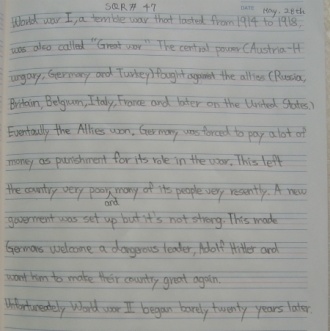 SQR# 47 DATE May. 28th
World war I, a terrible war that lasted from 1914 to 1918.
was also called "Great war" The central power (Austria-H
ungary, Germany and Turkey) fought against the allies (Russia,
Britain, Belgium, Italy, France and later on the United States.)
Eventually the Allies won. Germany was forced to pay a lot of
money as punishment for its role in the war. This left
the country very poor, and many of its people very resently. A new
goverment was set up but it's not strong. This made
Germans welcome a dangerous leader, Adolf Hitler and
want him to make their country great again.
Unfortunately World war II began barely twenty years later.